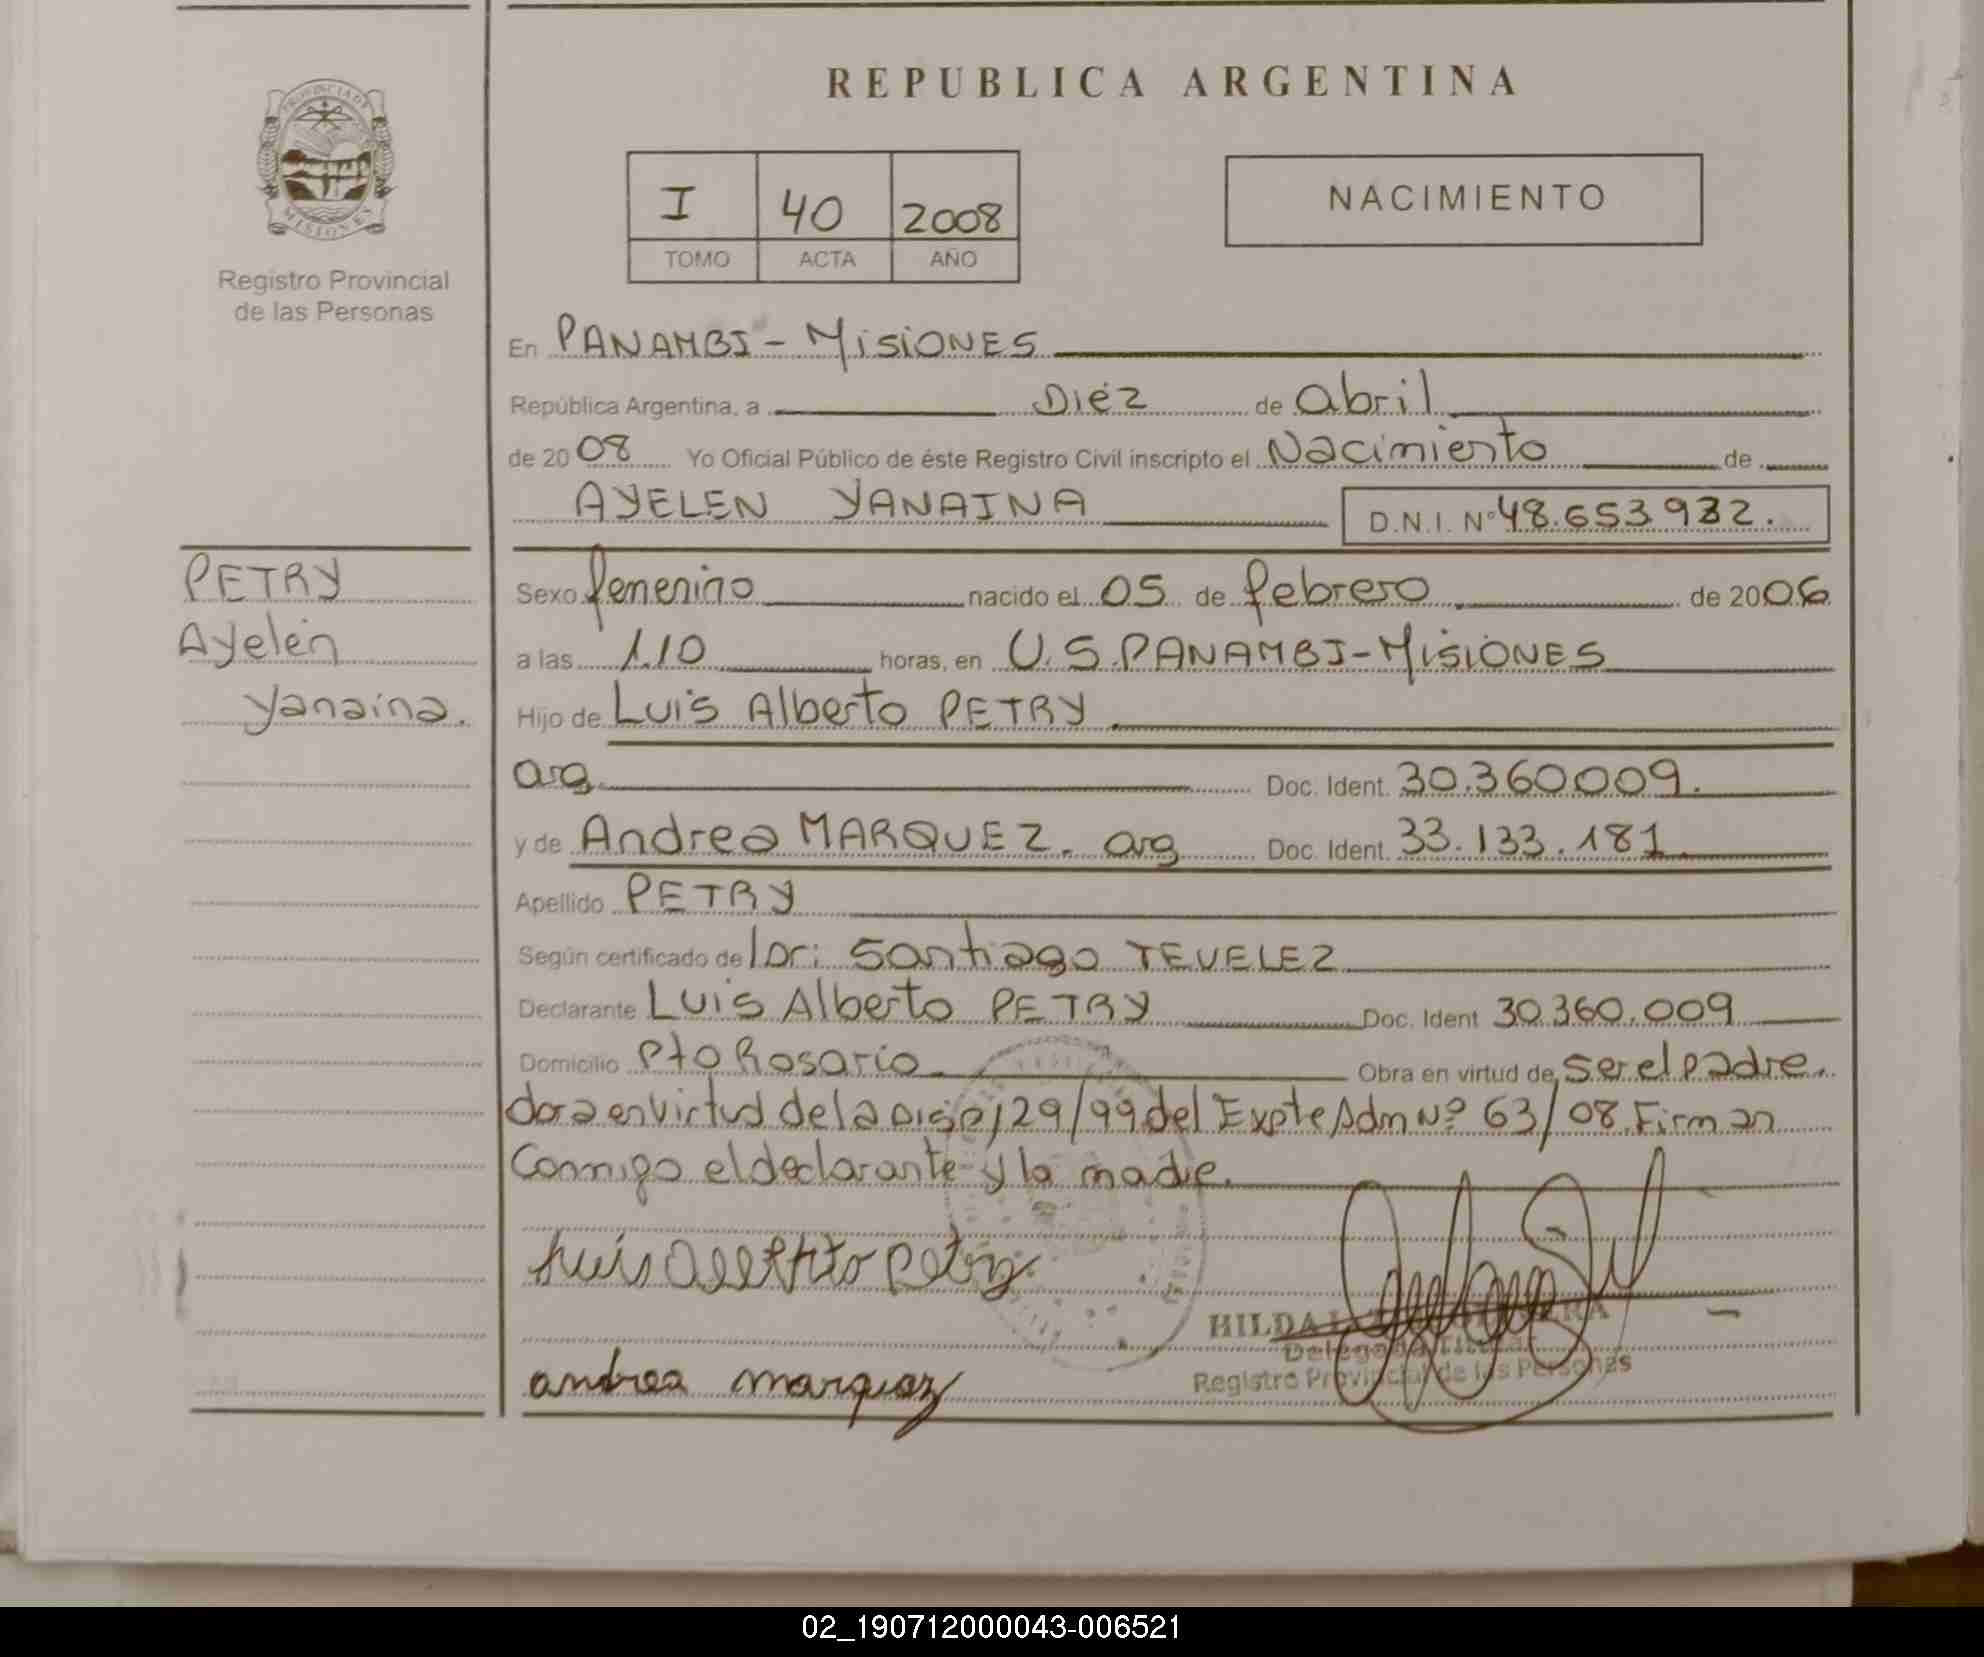 REPUBLICA ARGENTINA
PROVINCIA DE MISIONES
Registro Provincial
de las Personas
I 40 2008
TOMO ACTA AÑO
NACIMIENTO
En PANAMBI - MISIONES
República Argentina, a Diez de abril
de 2008 Yo Oficial Público de éste Registro Civil inscripto el Nacimiento de
AYELEN YANAINA D.N.I. Nº 48.653.932.
PETRY
Ayelen
Yanaina.
Sexo femenino nacido el 05 de febrero de 2006
a las 1.10 horas, en U.S. PANAMBI - MISIONES
Hijo de Luis Alberto PETRY.
arg. Doc. Ident. 30.360009.
y de Andrea MARQUEZ. arg Doc. Ident. 33.133.181
Apellido PETRY
Según certificado de Dr: Santiago TEVELEZ
Declarante Luis Alberto PETRY Doc. Ident 30.360.009
Domicilio Pto Rosario. Obra en virtud de ser el padre.
en virtud de la Disp 29/99 del Expte Adm Nº 63/08. Firman
Conmigo el declarante y la madre.
Luis Alberto Petry
HILDA
Delegada Titular
Registro Provincial de las Personas
andrea marquez
02_190712000043-006521